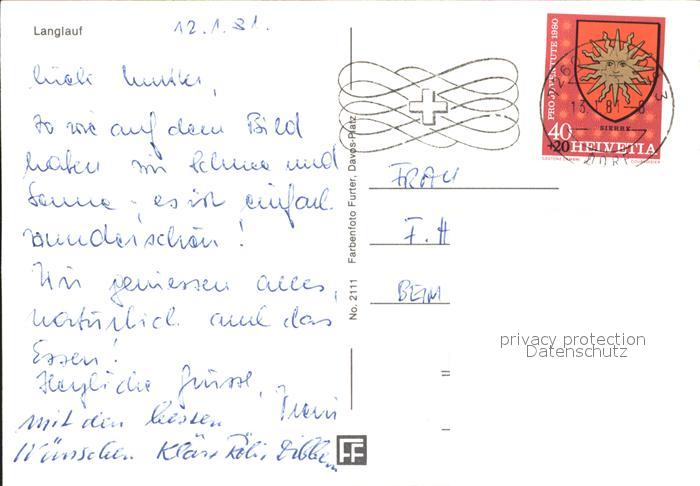 Langlauf
12.1.81.
So wie auf dem Bild
haben wir Schnee und
Sonne, es ist einfach
wunderschön!
Wir geniessen alles,
natürlich auch das
Essen!
Herzliche Grüsse,
mit den besten
Wünschen Kläri
FF
No. 2111 Farbenfoto Furter, Davos-Platz
PRO JUVENTUTE 1980
SIERRE
40
+20 HELVETIA
13.1.81-8
FRAU
F.H
BEIM
privacy protection
Datenschutz